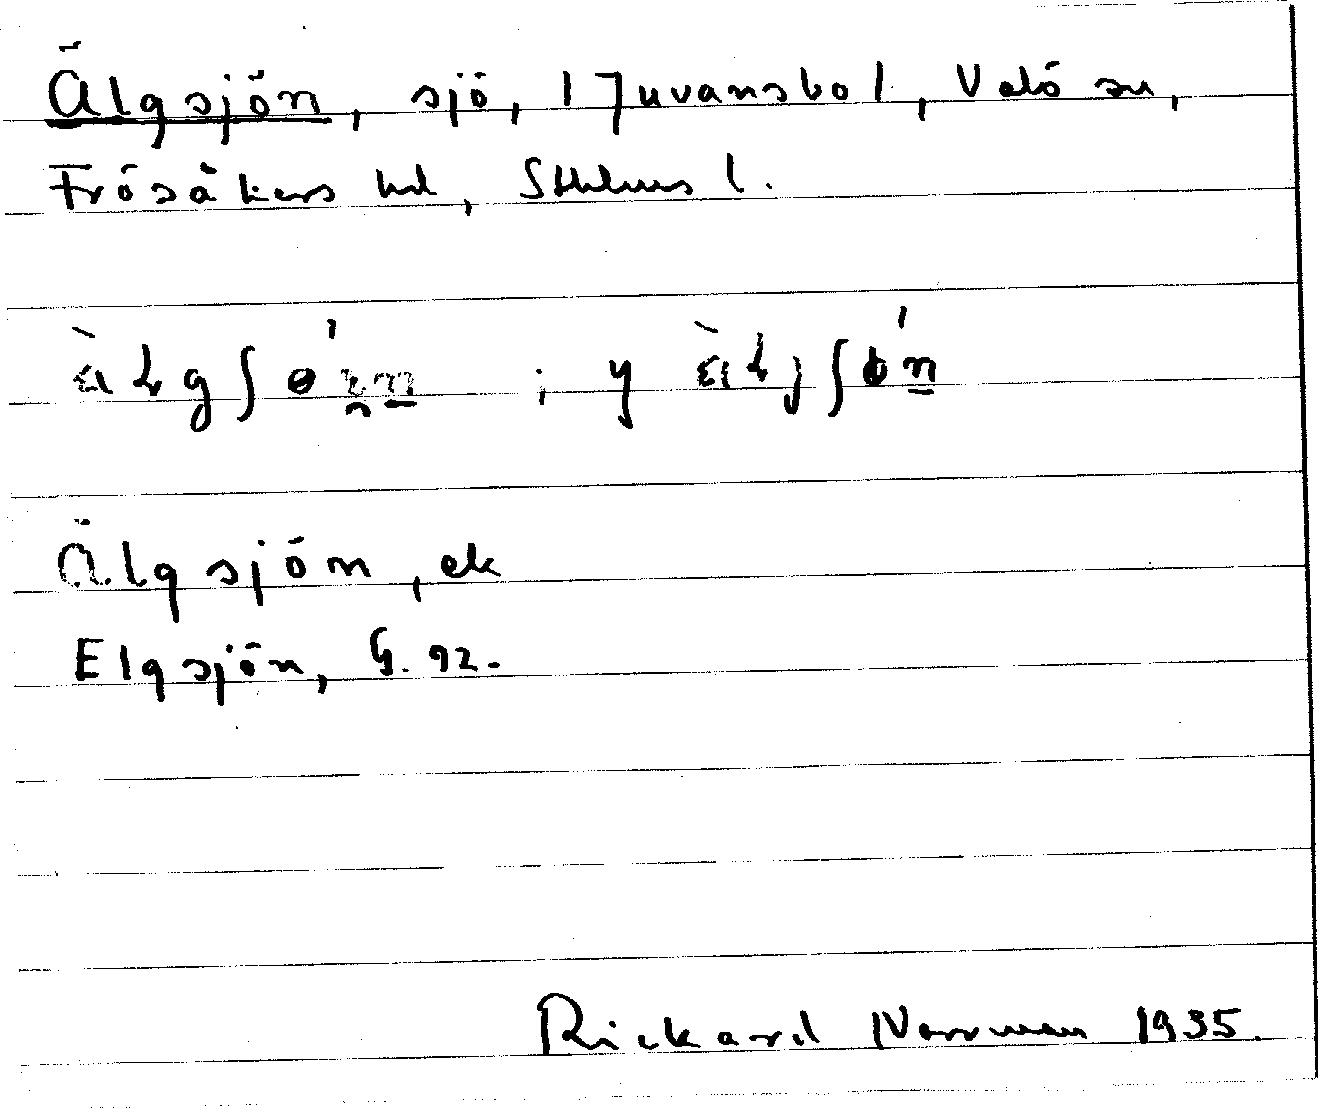 Älgsjön, sjö, l Juvansbol, Valö sn,
Frösåkers hd, Sthlms l.
Älgsjön, ek
Elgsjön, G. 92.
Rickard Norrman 1935.